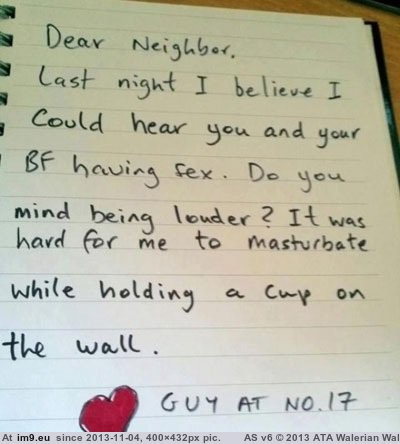 Dear Neighbor.
Last night I believe I
Could hear you and your
BF having sex. Do you
mind being louder? It was
hard for me to masturbate
while holding a cup on
the wall.
GUY AT NO.17
At im9.eu since 2013-11-04, 400×432px pic. AS v6 © 2013 ATA Walerian Wal